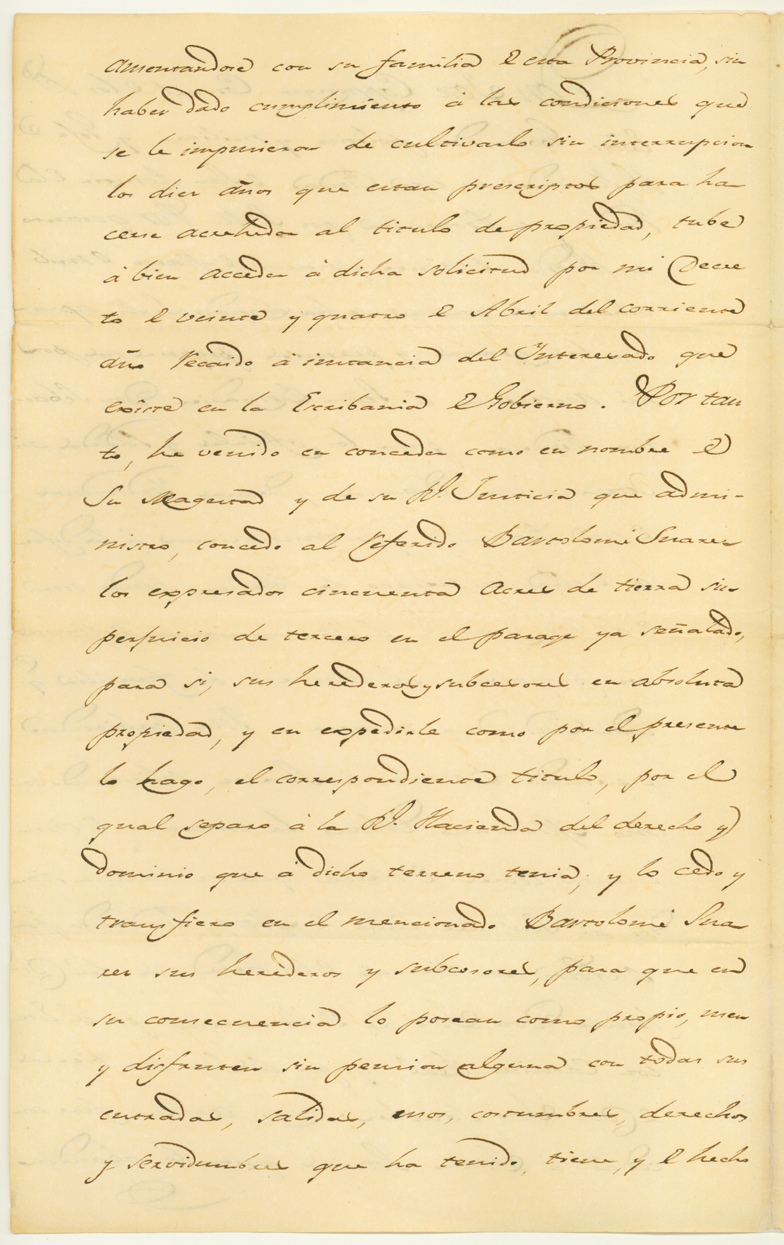 ausentandose con su familia de esta Provincia, sin
haber dado cumplimiento á las condiciones que
se le impusieron de cultivarlo sin interrupcion
los diez años que estan prescriptos para ha
cerse acrehedor al titulo de propiedad, tube
á bien acceder á dicha solicitud por mi Decre
to de veinte y quatro de Abril del corriente
año recaido á instancia del Interesado que
existe en la Escribania de Gobierno. Por tan
to, he venido en conceder como en nombre de
Su Magestad y de su Rl. Justicia que admi-
nistro, concedo al referido Bartolomé Suarez
los expresados cincuenta acres de tierra sin
perjuicio de tercero en el parage ya señalado,
para si, sus herederos y subcesores en absoluta
propiedad, y en expedirle como por el presente
lo hago, el correspondiente titulo, por el
qual separo á la Rl. Hacienda del derecho y
dominio que á dicho terreno tenia, y lo cedo y
transfiero en el mencionado Bartolomé Sua
rez sus herederos y subcesores, para que en
su consecuencia lo posean como propio, usen
y disfruten sin pension alguna con todas sus
entradas, salidas, usos, costumbres, derechos
y servidumbres que ha tenido, tiene, y de hecho